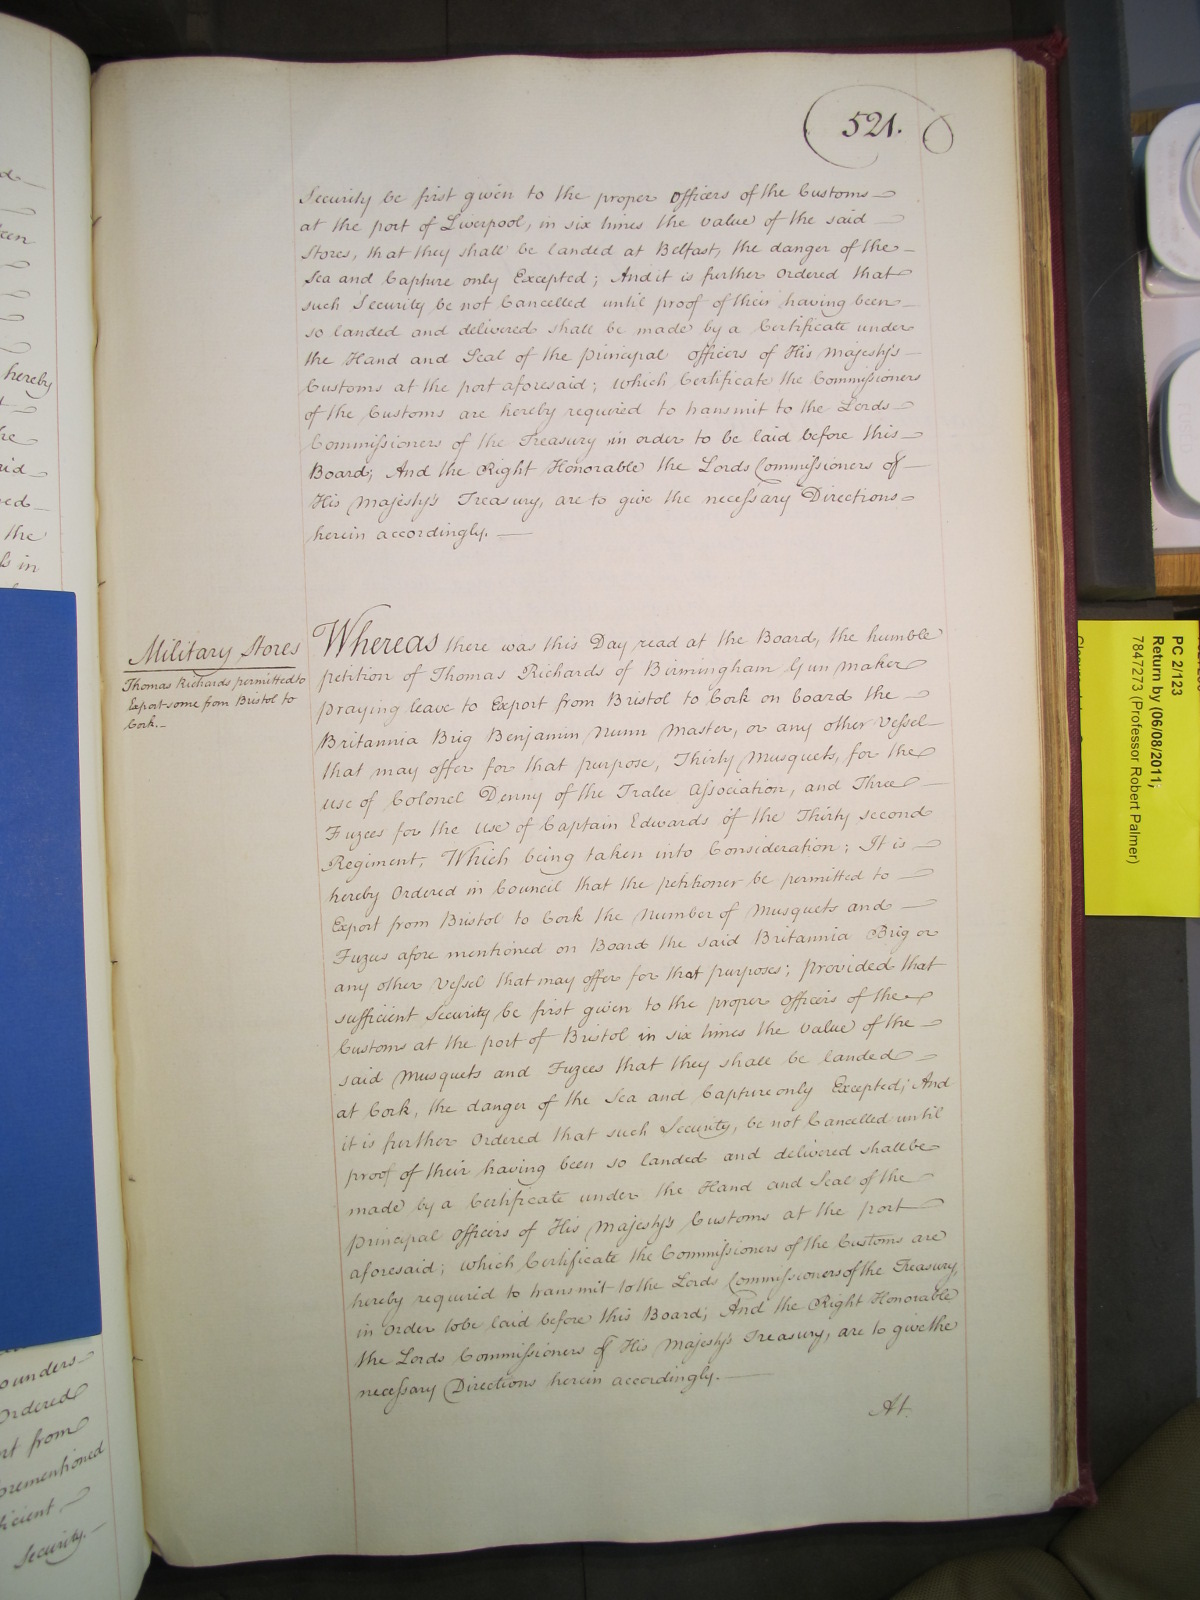 521.
Security be first given to the proper officers of the Customs
at the port of Liverpool, in six times the value of the said
Stores, that they shall be landed at Belfast, the danger of the
Sea and Capture only Excepted; And it is further ordered that
such Security be not Cancelled until proof of their having been
so landed and delivered shall be made by a Certificate under
the Hand and Seal of the principal officers of His Majesty's
Customs at the port aforesaid; which Certificate the Commissioners
of the Customs are hereby required to transmit to the Lords
Commissioners of the Treasury in order to be laid before this
Board; And the Right Honorable the Lords Commissioners of
His Majesty's Treasury, are to give the necessary Directions
herein accordingly.
Military Stores
Thomas Richards permitted to
Export some from Bristol to
Cork.
Whereas there was this Day read at the Board, the humble
petition of Thomas Richards of Birmingham Gun maker
praying leave to Export from Bristol to Cork on board the
Britannia Brig Benjamin Nunn Master, or any other Vessel
that may offer for that purpose, Thirty Musquets, for the
use of Colonel Denny of the Tralee Association, and Three
Fuzees for the use of Captain Edwards of the Thirty second
Regiment; Which being taken into Consideration; It is
hereby Ordered in Council that the petitioner be permitted to
Export from Bristol to Cork the Number of Musquets and
Fuzees afore mentioned on Board the said Britannia Brig or
any other Vessel that may offer for that purposes; provided that
sufficient Security be first given to the proper officers of the
Customs at the port of Bristol in six times the value of the
said Musquets and Fuzees that they shall be landed
at Cork, the danger of the Sea and Capture only Excepted; And
it is further ordered that such Security, be not Cancelled until
proof of their having been so landed and delivered shall be
made by a Certificate under the Hand and Seal of the
principal officers of His Majesty's Customs at the port
aforesaid; which Certificate the Commissioners of the Customs are
hereby required to transmit to the Lords Commissioners of the Treasury,
in Order to be laid before this Board; And the Right Honorable
the Lords Commissioners of His Majesty's Treasury, are to give the
necessary Directions herein accordingly.
At.
hereby
the
in
ounders
Ordered
from
forementioned
Security.
PC 2/123
Return by (06/08/2011;
7847273 (Professor Robert Palmer)